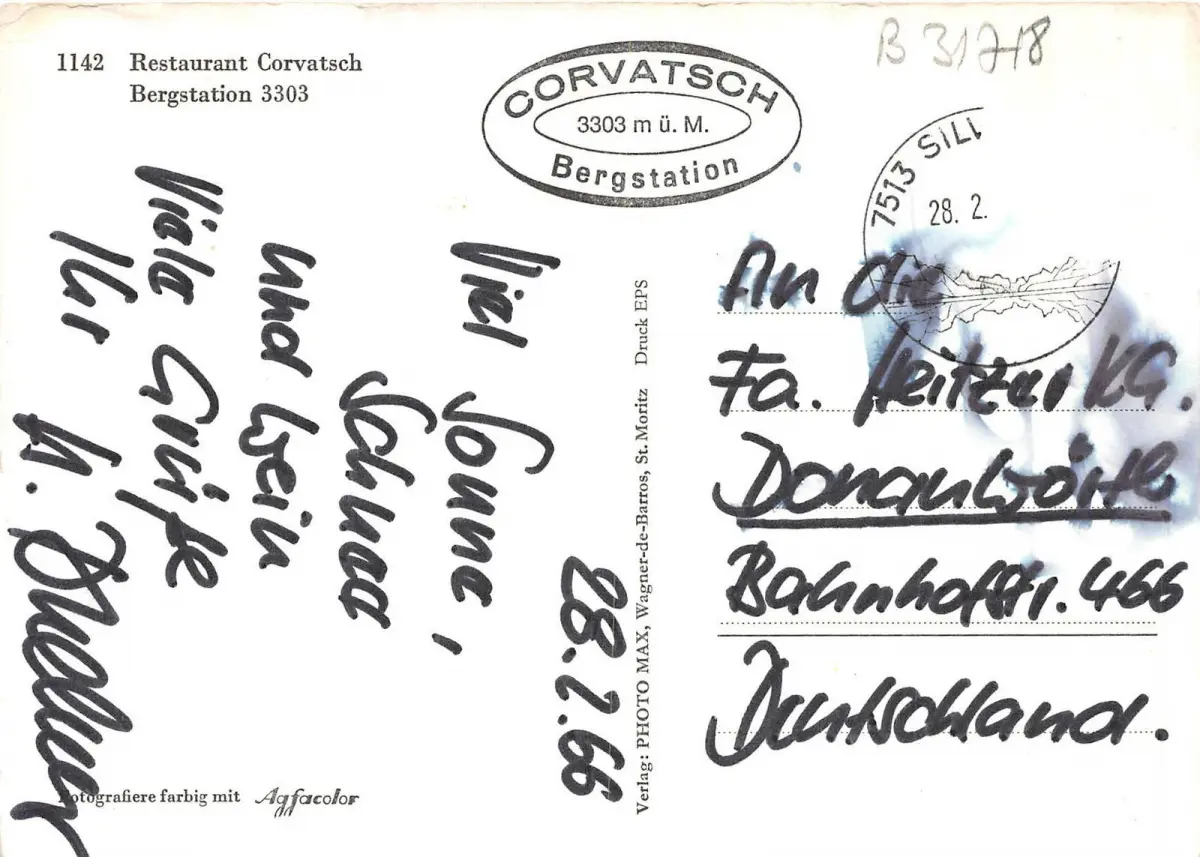 1142 Restaurant Corvatsch
Bergstation 3303
CORVATSCH
3303 m ü. M.
Bergstation
B 31718
7513 SILS
28. 2.
28.2.66
Viel Sonne,
Schnee
und Wein
Viele Grüße
Ihr
An die
Fa. KG.
Donauwörth
Bahnhofstr. 466
Deutschland.
Verlag: PHOTO MAX, Wagner-de-Barros, St. Moritz Druck EPS
Fotografiere farbig mit Agfacolor